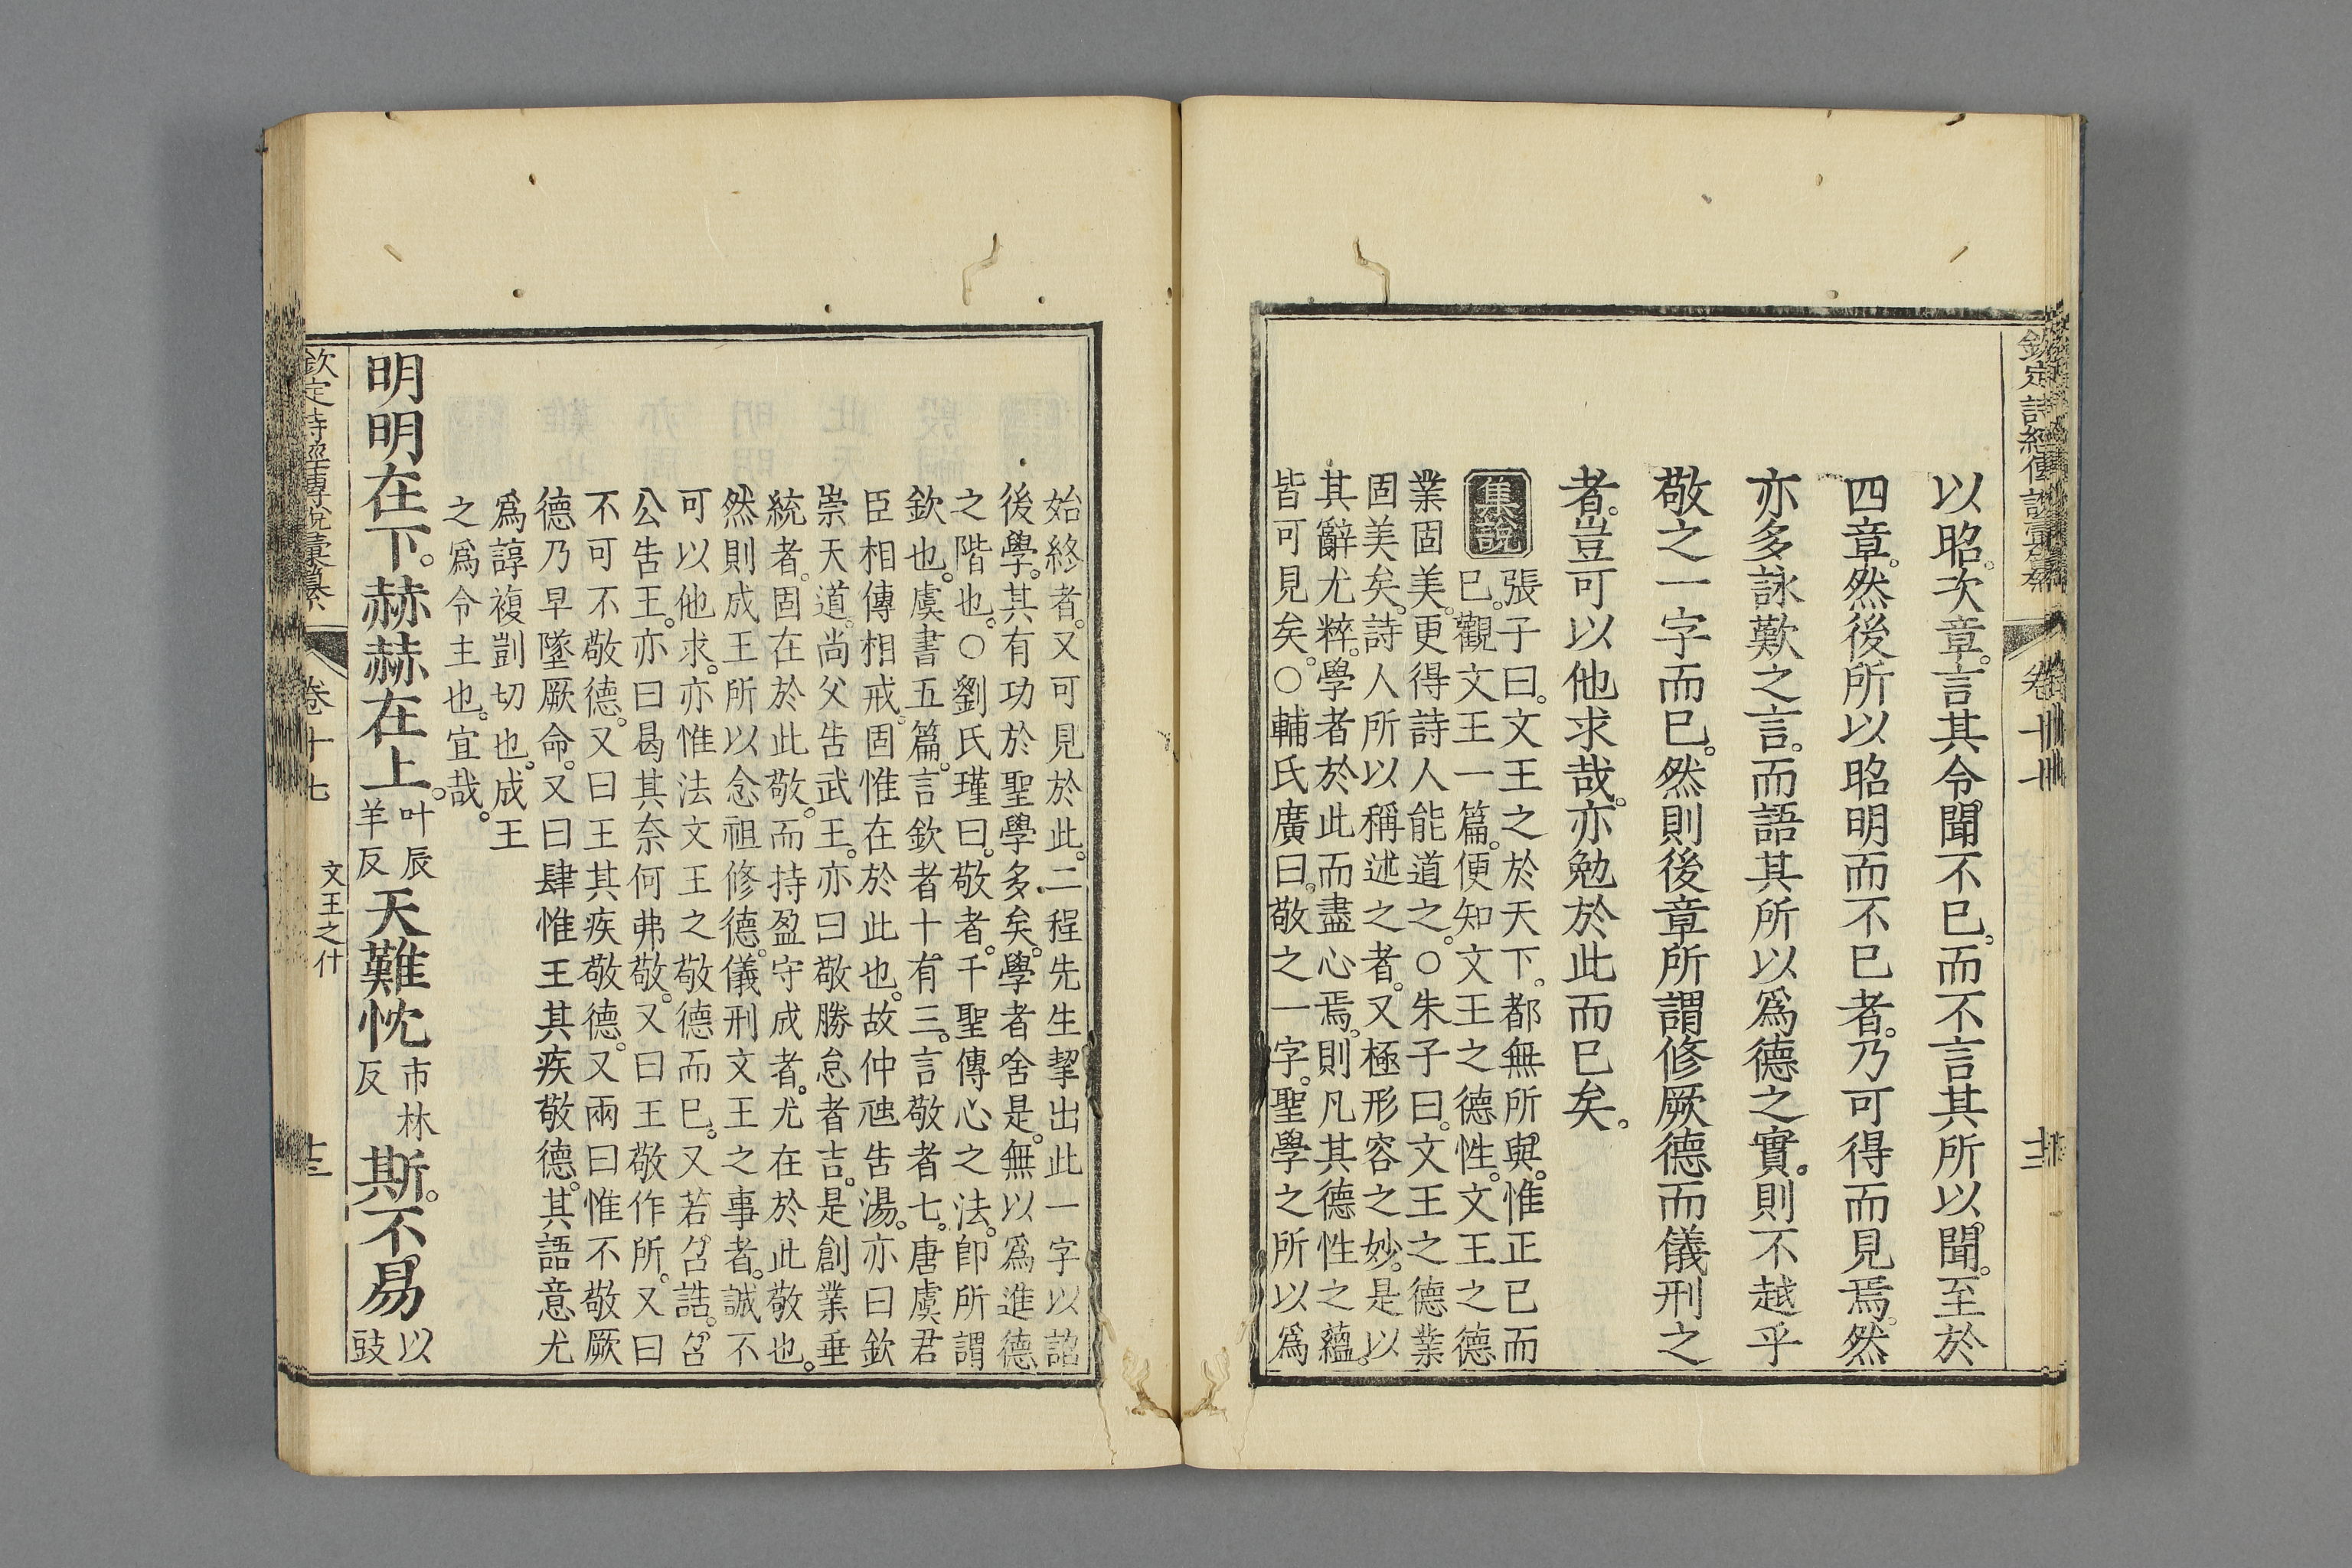 欽定詩經傳說彙纂
卷十七
十三
以昭。次章。言其令聞不已。而不言其所以聞。至於
四章。然後所以昭明而不已者。乃可得而見焉。然
亦多詠歎之言。而語其所以爲德之實。則不越乎
敬之一字而已。然則後章所謂修厥德而儀刑之
者。豈可以他求哉。亦勉於此而已矣。
集說
張子曰。文王之於天下。都無所與。惟正已而
已。觀文王一篇。便知文王之德性。文王之德
業固美。更得詩人能道之。○朱子曰。文王之德業
固美矣。詩人所以稱述之者。又極形容之妙。是以
其辭尤粹。學者於此而盡心焉。則凡其德性之蘊。
皆可見矣。○輔氏廣曰。敬之一字。聖學之所以爲
始終者。又可見於此。二程先生挈出此一字以詔
後學。其有功於聖學多矣。學者舍是。無以爲進德
之階也。○劉氏瑾曰。敬者。千聖傳心之法。卽所謂
欽也。虞書五篇。言欽者十有三。言敬者七。唐虞君
臣相傳相戒。固惟在於此也。故仲虺告湯。亦曰欽
崇天道。尚父告武王。亦曰敬勝怠者吉。是創業垂
統者。固在於此敬。而持盈守成者。尤在於此敬也。
然則成王所以念祖修德。儀刑文王之事者。誠不
可以他求。亦惟法文王之敬德而已。又若召誥。召
公告王。亦曰曷其奈何弗敬。又曰王敬作所。又曰
不可不敬德。又曰王其疾敬德。又兩曰惟不敬厥
德乃早墜厥命。又曰肆惟王其疾敬德。其語意尤
爲諄複剴切也。成王
之爲令主也。宜哉。
明明在下。赫赫在上。叶辰羊反天難忱市林反斯。不易以豉
欽定詩經傳說彙纂
卷十七
文王之什
十三